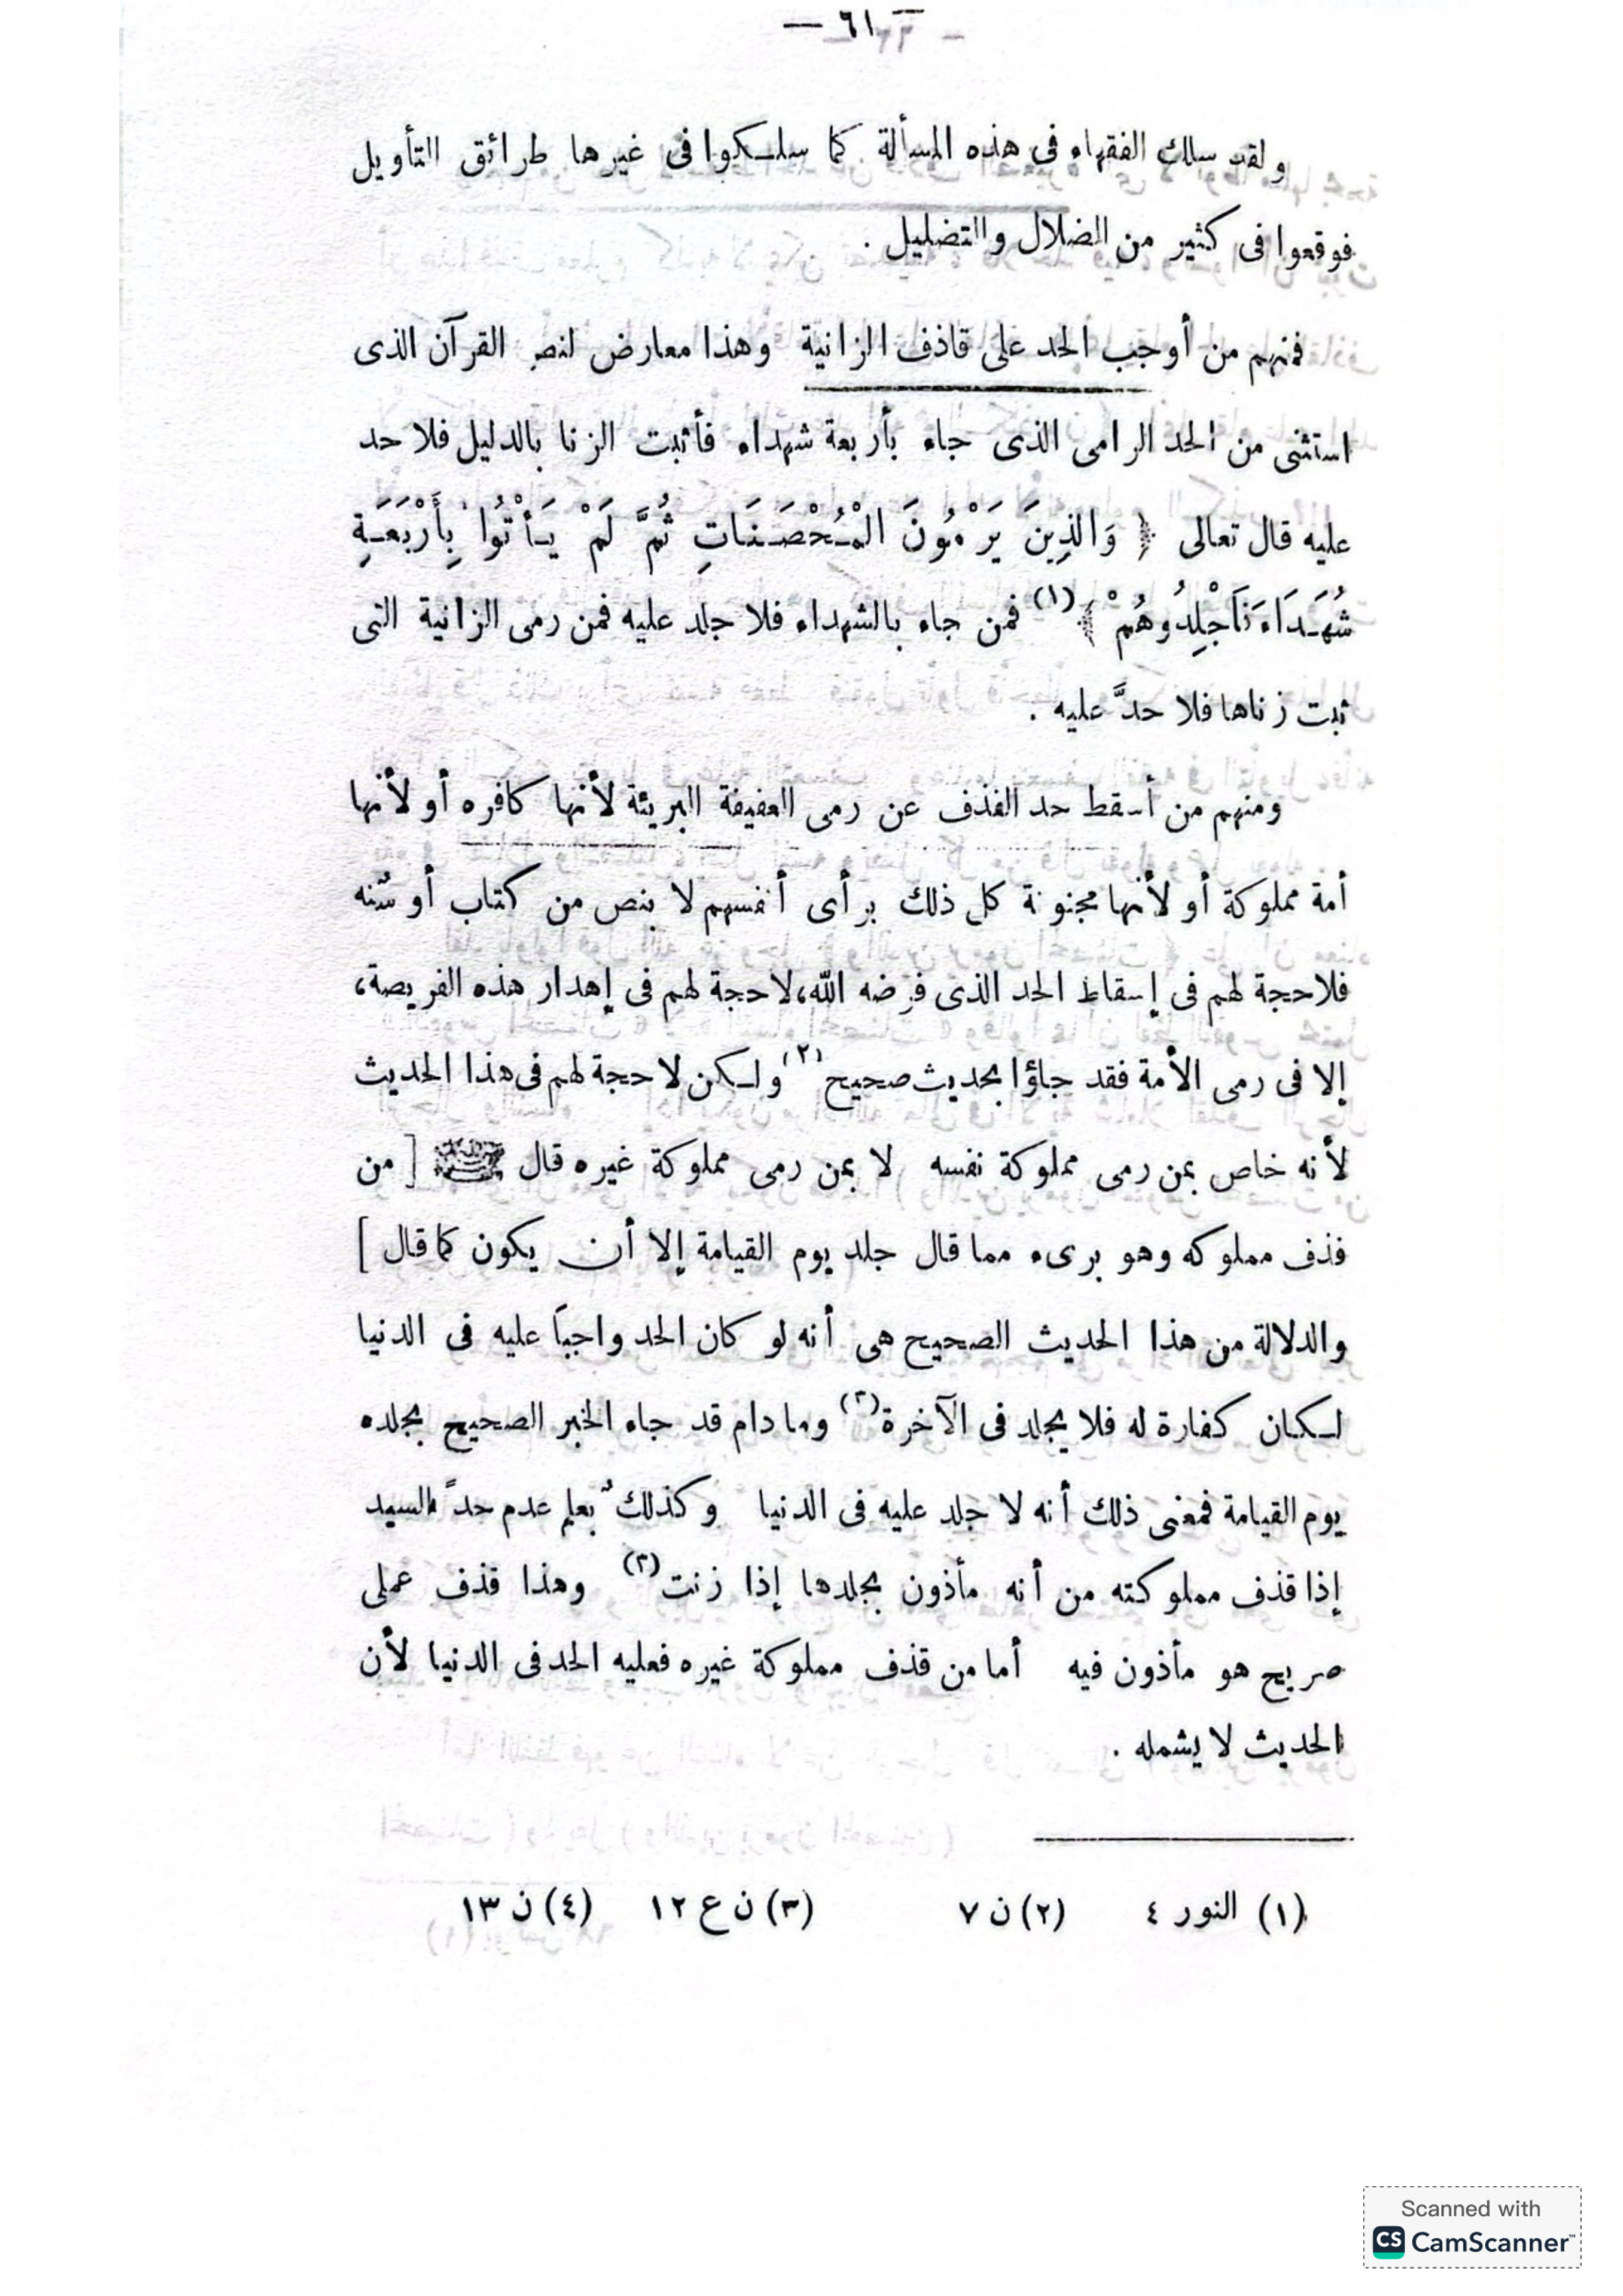 — ٦١ —
ولقد سلك الفقهاء فى هذه المسألة كما سلكوا فى غيرها طرائق التأويل
فوقعوا فى كثير من الضلال والتضليل .
فمنهم من أوجب الحد على قاذف الزانية وهذا معارض لنص القرآن الذى
استثنى من الحد الرامى الذى جاء بأربعة شهداء فأثبت الزنا بالدليل فلا حد
عليه قال تعالى ﴿ وَالذِينَ يَرْمُونَ الْمُحْصَنَاتِ ثُمَّ لَمْ يَأْتُوا بِأَرْبَعَةِ
شُهَدَاءَ فَاجْلِدُوهُمْ ﴾(١) فمن جاء بالشهداء فلا جلد عليه فمن رمى الزانية التى
ثبت زناها فلا حدَّ عليه .
ومنهم من أسقط حد القذف عن رمى العفيفة البريئة لأنها كافره أو لأنها
أمة مملوكة أو لأنها مجنونة كل ذلك برأى أنفسهم لا بنص من كتاب أو سُنه
فلاحجة لهم فى إسقاط الحد الذى فرضه الله، لاحجة لهم فى إهدار هذه الفريضة،
إلا فى رمى الأمة فقد جاؤا بحديث صحيح(٢) ولكن لاحجة لهم فى هذا الحديث
لأنه خاص بمن رمى مملوكة نفسه لا بمن رمى مملوكة غيره قال ﷺ [ من
قذف مملوكه وهو برىء مما قال جلد يوم القيامة إلا أن يكون كما قال ]
والدلالة من هذا الحديث الصحيح هى أنه لو كان الحد واجباً عليه فى الدنيا
لكان كفارة له فلا يجلد فى الآخرة(٣) وما دام قد جاء الخبر الصحيح بجلده
يوم القيامة فمعنى ذلك أنه لا جلد عليه فى الدنيا وكذلك يُعلم عدم حدّ السيد
إذا قذف مملوكته من أنه مأذون بجلدها إذا زنت(٣) وهذا قذف عملى
صريح هو مأذون فيه أما من قذف مملوكة غيره فعليه الحد فى الدنيا لأن
الحديث لا يشمله .
(١) النور ٤ (٢) ن ٧ (٣) ن ع ١٢ (٤) ن ١٣
Scanned with
CS CamScanner™